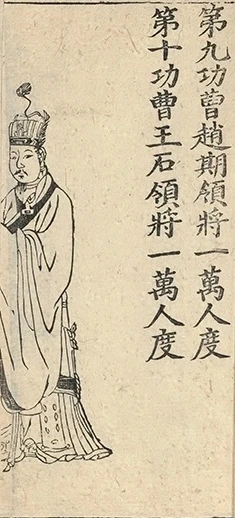 第九功曹趙期領將一萬人度
第十功曹王石領將一萬人度